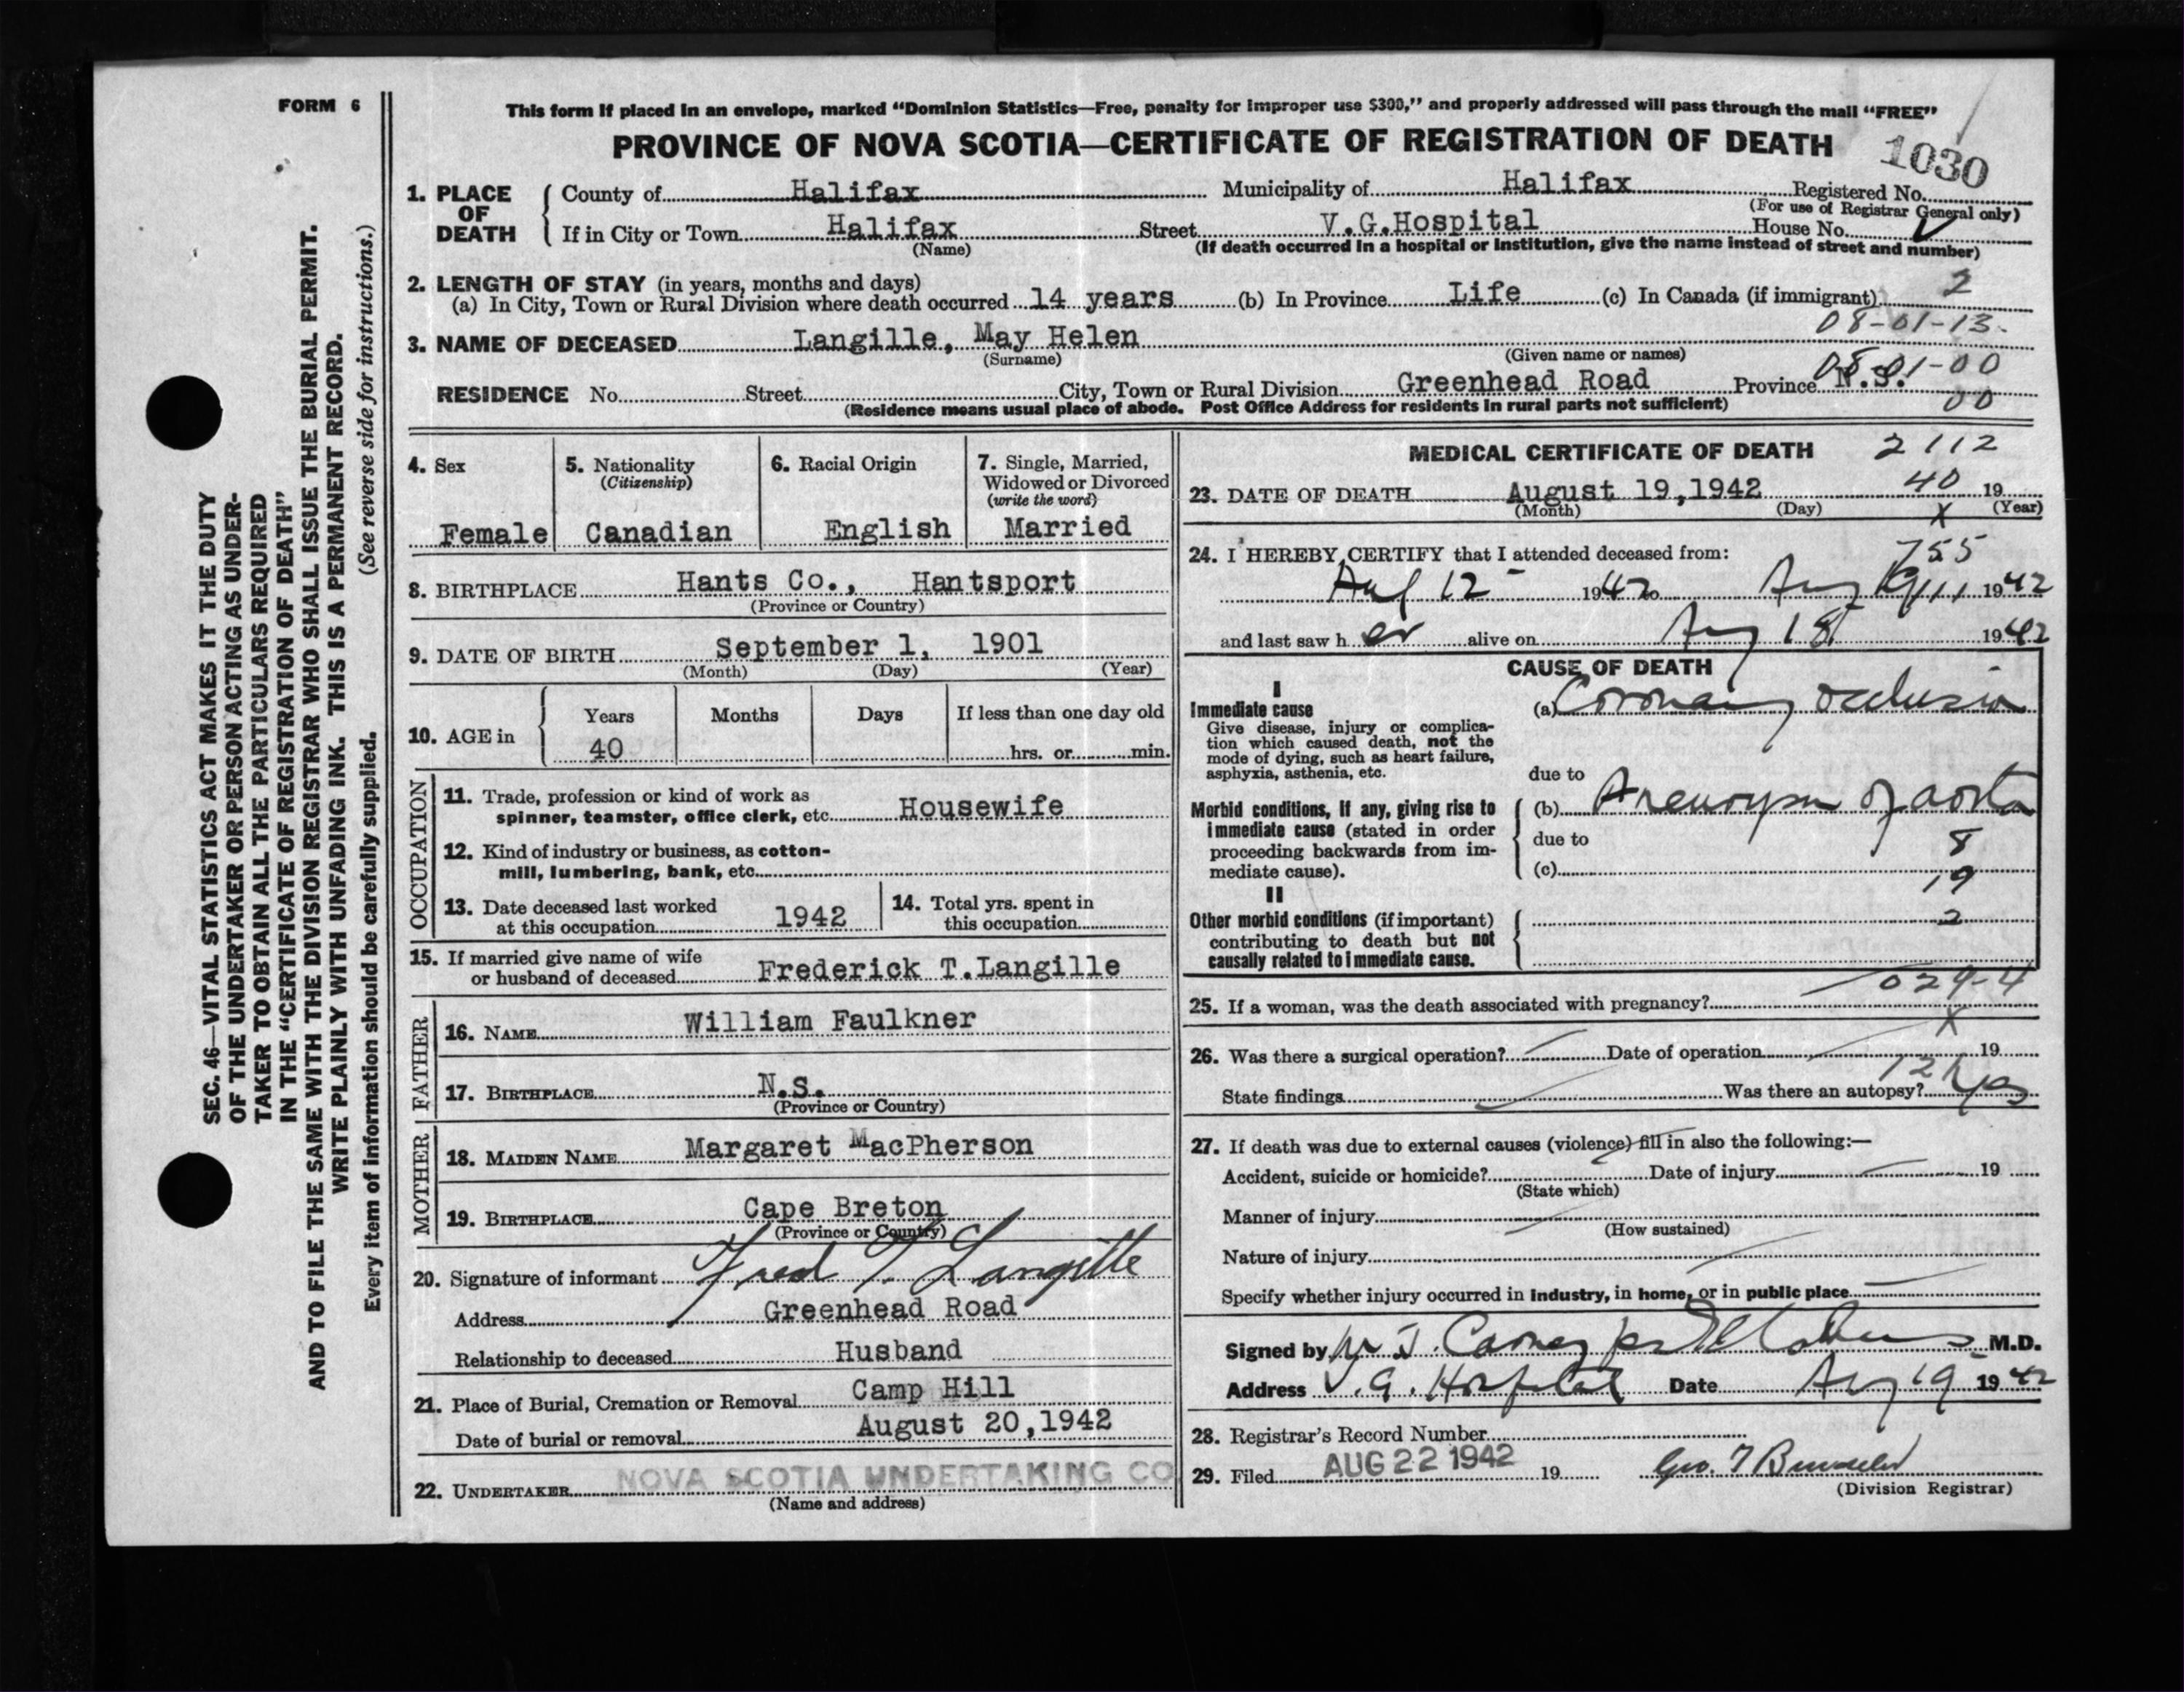 FORM 6
This form if placed in an envelope, marked “Dominion Statistics—Free, penalty for improper use $300,” and properly addressed will pass through the mail “FREE”
PROVINCE OF NOVA SCOTIA—CERTIFICATE OF REGISTRATION OF DEATH
1030
1. PLACE OF DEATH
County of Halifax Municipality of Halifax Registered No.
(For use of Registrar General only)
If in City or Town Halifax Street V.G.Hospital House No.
(Name) (If death occurred in a hospital or institution, give the name instead of street and number)
2. LENGTH OF STAY (in years, months and days)
(a) In City, Town or Rural Division where death occurred 14 years (b) In Province Life (c) In Canada (if immigrant) 2
08-01-13
3. NAME OF DECEASED Langille, May Helen
(Surname) (Given name or names)
08-01-00
RESIDENCE No. Street City, Town or Rural Division Greenhead Road Province N.S.
(Residence means usual place of abode. Post Office Address for residents in rural parts not sufficient) 00
4. Sex
Female
5. Nationality
(Citizenship)
Canadian
6. Racial Origin
English
7. Single, Married,
Widowed or Divorced
(write the word)
Married
8. BIRTHPLACE Hants Co., Hantsport
(Province or Country)
9. DATE OF BIRTH September 1, 1901
(Month) (Day) (Year)
10. AGE in
Years Months Days If less than one day old
40 hrs. or min.
OCCUPATION
11. Trade, profession or kind of work as
spinner, teamster, office clerk, etc. Housewife
12. Kind of industry or business, as cotton-
mill, lumbering, bank, etc.
13. Date deceased last worked
at this occupation 1942
14. Total yrs. spent in
this occupation
15. If married give name of wife
or husband of deceased Frederick T.Langille
FATHER
16. NAME William Faulkner
17. BIRTHPLACE N.S.
(Province or Country)
MOTHER
18. MAIDEN NAME Margaret MacPherson
19. BIRTHPLACE Cape Breton
(Province or Country)
20. Signature of informant Fred T. Langille
Address Greenhead Road
Relationship to deceased Husband
21. Place of Burial, Cremation or Removal Camp Hill
Date of burial or removal August 20,1942
22. UNDERTAKER NOVA SCOTIA UNDERTAKING CO
(Name and address)
MEDICAL CERTIFICATE OF DEATH 2112
23. DATE OF DEATH August 19,1942 40 19
(Month) (Day) (Year)
X
24. I HEREBY CERTIFY that I attended deceased from:
755
Aug 12 1942 to Aug 19 1942
and last saw h er alive on Aug 18 1942
CAUSE OF DEATH
I
Immediate cause
Give disease, injury or complica-
tion which caused death, not the
mode of dying, such as heart failure,
asphyxia, asthenia, etc.
(a) Coronary occlusion
due to
Morbid conditions, if any, giving rise to
immediate cause (stated in order
proceeding backwards from im-
mediate cause).
(b) Aneurysm of aorta
due to 8
(c)
19
II
Other morbid conditions (if important)
contributing to death but not
causally related to immediate cause.
2
029-4
25. If a woman, was the death associated with pregnancy?
X
26. Was there a surgical operation? Date of operation 19
12
State findings Was there an autopsy? Yes
27. If death was due to external causes (violence) fill in also the following:—
Accident, suicide or homicide? Date of injury 19
(State which)
Manner of injury
(How sustained)
Nature of injury
Specify whether injury occurred in industry, in home, or in public place
Signed by M.D.
Address V.G. Hospital Date Aug 19 1942
28. Registrar's Record Number
29. Filed AUG 22 1942 19 Geo. T
(Division Registrar)
SEC. 46—VITAL STATISTICS ACT MAKES IT THE DUTY
OF THE UNDERTAKER OR PERSON ACTING AS UNDER-
TAKER TO OBTAIN ALL THE PARTICULARS REQUIRED
IN THE “CERTIFICATE OF REGISTRATION OF DEATH”
AND TO FILE THE SAME WITH THE DIVISION REGISTRAR WHO SHALL ISSUE THE BURIAL PERMIT.
WRITE PLAINLY WITH UNFADING INK. THIS IS A PERMANENT RECORD.
(See reverse side for instructions.)
Every item of information should be carefully supplied.